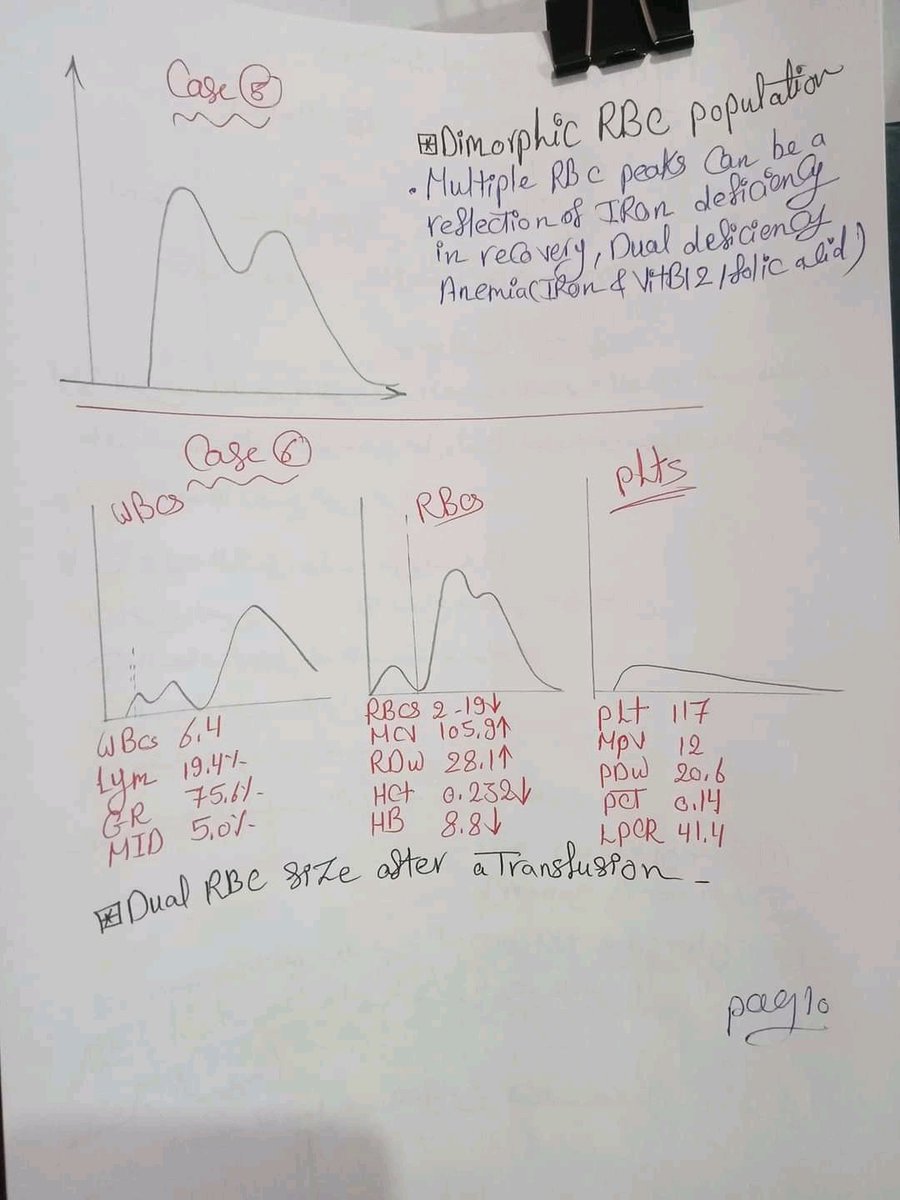 Case 8
Dimorphic RBC population
. Multiple RBC peaks Can be a
reflection of IRon deficiency
in recovery, Dual deficiency
Anemia(IRon & VitB12/folic acid)
Case 6
WBCs
RBCs
plts
WBCs 6,4
Lym 19.4%
GR 75.6%
MID 5.0%
RBCs 2-19↓
MCV 105.9↑
RDW 28.1↑
HCt 0.232↓
HB 8.8↓
plt 117
MPV 12
PDW 20.6
PCT 0.14
LPCR 41.4
Dual RBC size after a Transfusion -
pag10